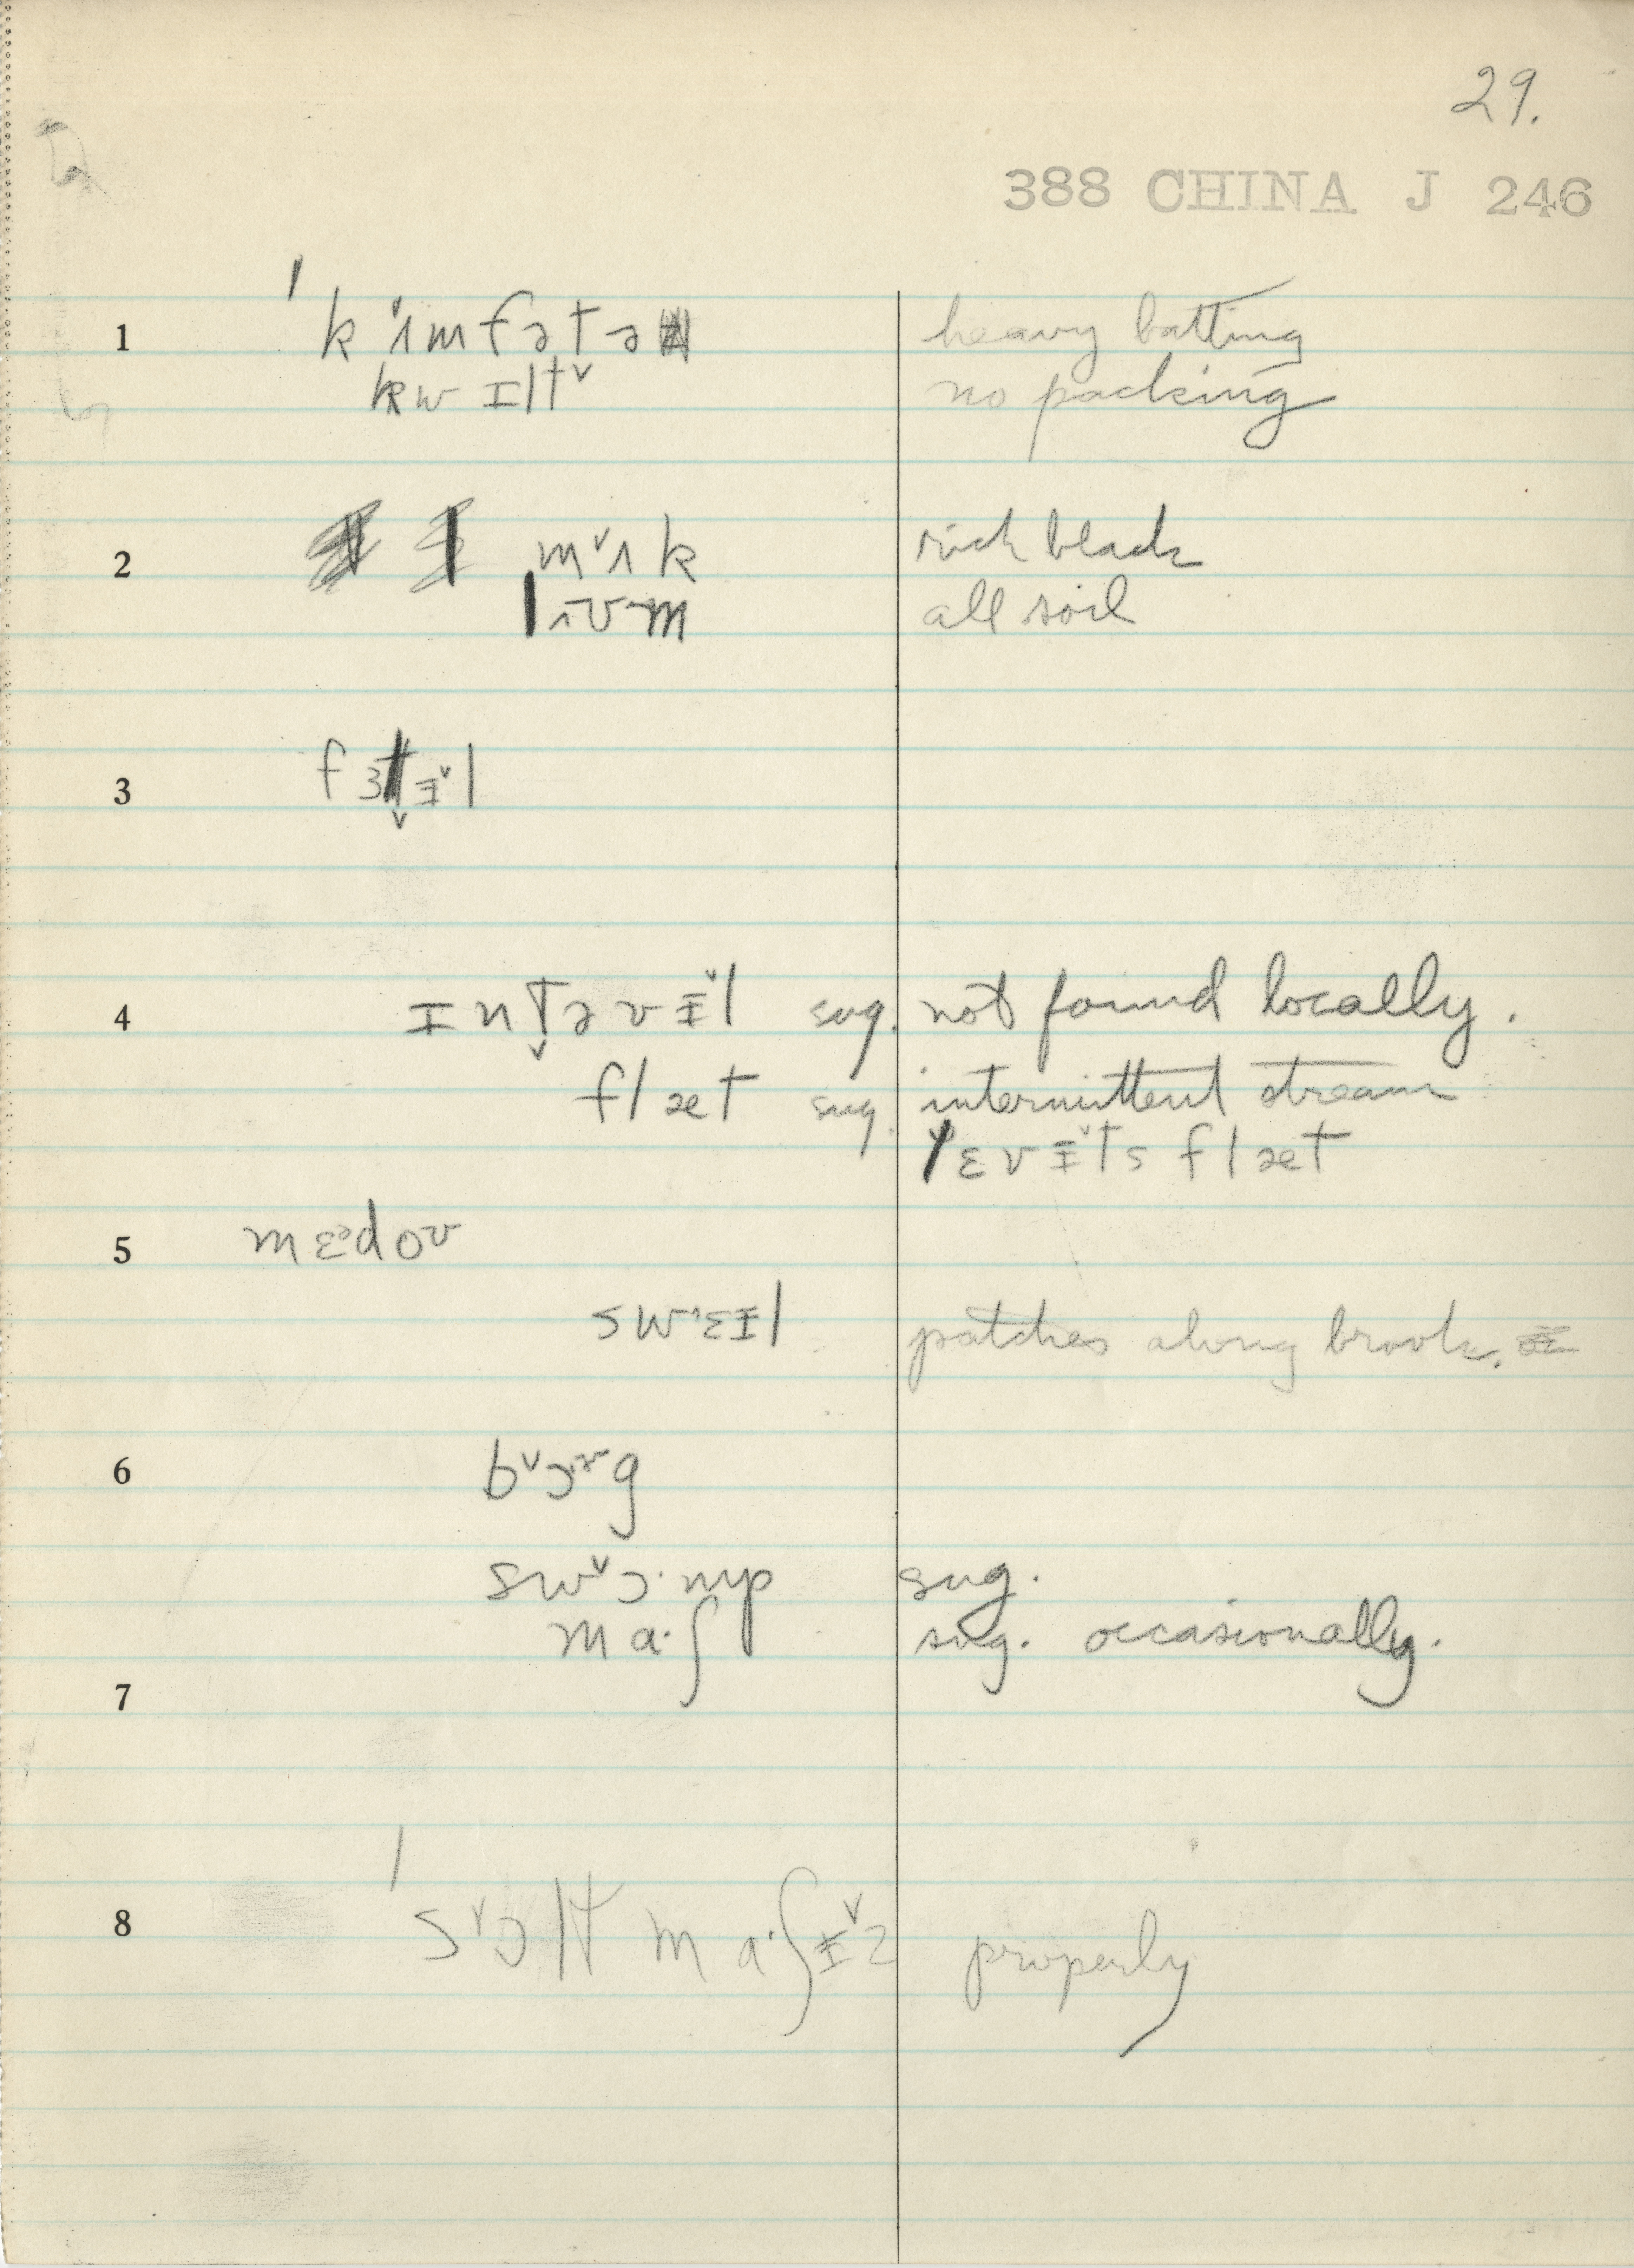 29.
388 CHINA J 246
1 kʌmfətə heavy batting
kwɪlt no packing
2 mʌk rich black
lʊm all soil
3 fɜtɨl
4 ɪntəvɨl sug. not found locally.
flæt sug. intermittent stream
rɛvɨts flæt
5 mɛdoʊ
swɛɪl patches along brook.
6 bɔg
swɔ·mp sug.
ma·ʃ sug. occasionally.
7
8 sɔlt ma·ʃɨz properly